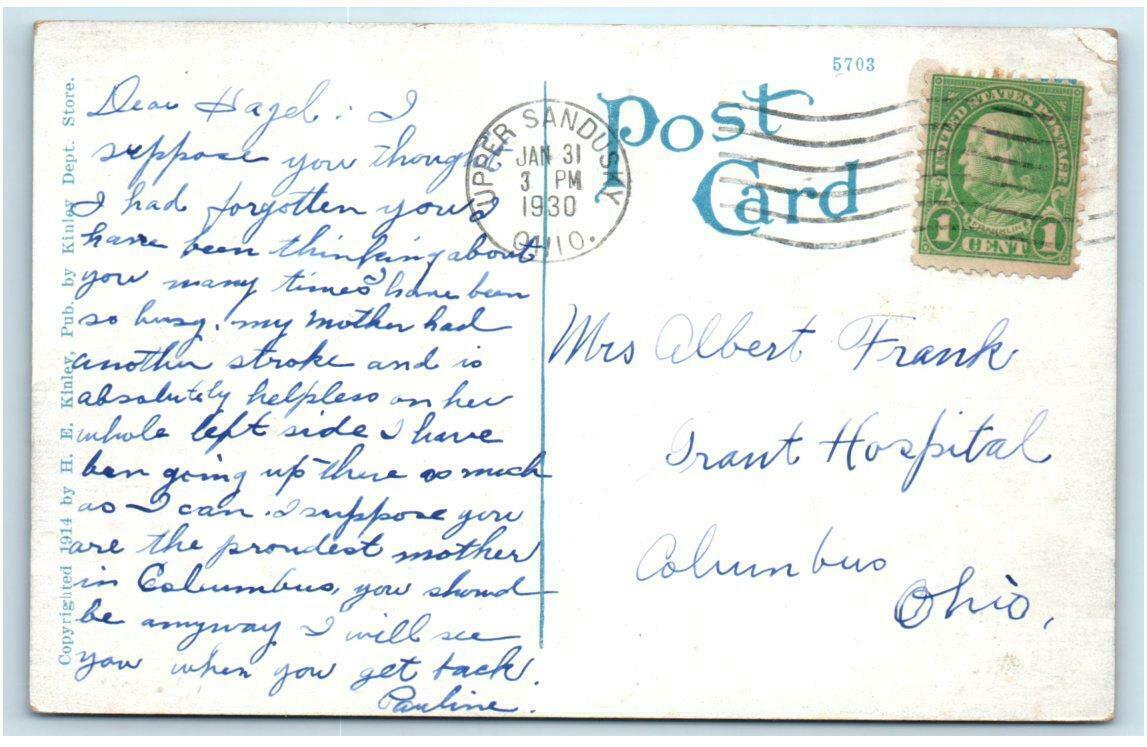 Copyrighted 1914 by H. E. Kinley, Pub. by Kinley Dept. Store.
Dear Hazel: I
suppose you thought
I had forgotten you I
have been thinking about
you many times I have been
so busy. my mother had
another stroke and is
absolutely helpless on her
whole left side I have
ben going up there as much
as I can. I suppose you
are the proudest mother
in Columbus, you should
be amyway I will see
you when you get back.
Pauline.
5703
Post
Card
UPPER SANDUSKY
JAN 31
3 PM
1930
OHIO.
UNITED STATES POSTAGE
FRANKLIN
1 CENT 1
Mrs Albert Frank
Grant Hospital
Columbus
Ohio,